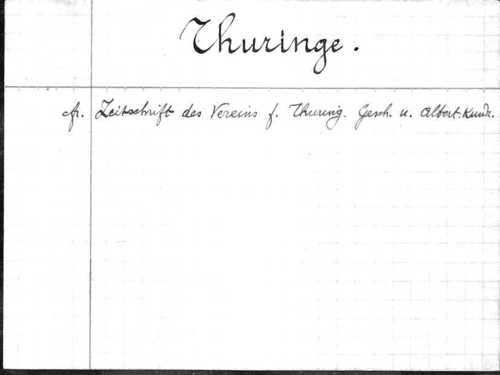 Thuringe.
cfr. Zeitschrift des Vereins f. Thuring. Gesch. u. Altert. Kunde.